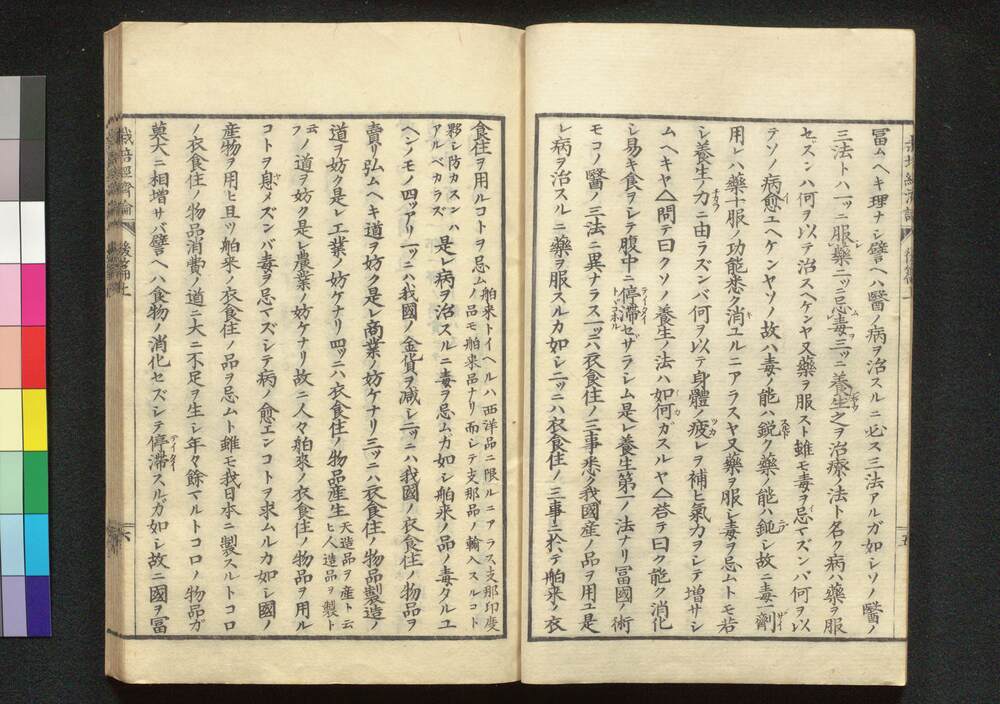 冨ムヘキ理ナシ譬ヘハ醫ノ病ヲ治スルニ必ス三法アルガ如シソノ醫ノ
三法トハ一ツニ服藥二ツニ忌毒三ツニ養生之ヲ治療ノ法ト名ク病ハ藥ヲ服
セズンハ何ヲ以テ治スヘケンヤ又藥ヲ服スト雖モ毒ヲ忌マズンバ何ヲ以
テソノ病愈ユヘケンヤソノ故ハ毒ノ能ハ鋭ク藥ノ能ハ鈍シ故ニ毒一劑
用レハ藥十服ノ功能悉ク消エルニアラスヤ又藥ヲ服シ毒ヲ忌ムトモ若
シ養生ノ力ニ由ラズンバ何ヲ以テ身體ノ疲レヲ補ヒ氣力ヲシテ増サシ
ムヘキヤ△問テ曰クソノ養生ノ法ハ如何ガスルヤ△荅テ曰ク能ク消化
シ易キ食ヲシテ腹中ニ停滯セザラシム是レ養生第一ノ法ナリ冨國ノ術
モコノ醫ノ三法ニ異ナラス一ツニハ衣食住ノ三事悉ク我國産ノ品ヲ用ユ是
レ病ヲ治スルニ藥ヲ服スルカ如シ二ツニハ衣食住ノ三事ニ於テ舶來ノ衣
五
食住ヲ用ルコトヲ忌ム舶来トイヘルハ西洋品ニ限ルニアラス支那印度
ノ品モ舶来品ナリ而シテ支那品ノ輸入スルコト
夥シ防カスンハ
アルベカラズ是レ病ヲ治スルニ毒ヲ忌ムカ如シ舶来ノ品ノ毒タルユ
ヘンノモノ四ツアリ一ツニハ我國ノ金貨ヲ减シ二ツニハ我國ノ衣食住ノ物品ヲ
賣リ弘ムヘキ道ヲ妨ク是レ商業ノ妨ケナリ三ツニハ衣食住ノ物品製造ノ
道ヲ妨ク是レ工業ノ妨ケナリ四ツニハ衣食住ノ物品産生天造品ヲ産ト云
ヒ人造品ヲ製ト
云
フノ道ヲ妨ク是レ農業ノ妨ケナリ故ニ人々舶來ノ衣食住ノ物品ヲ用ル
コトヲ息メズンバ毒ヲ忌マズシテ病ノ愈エンコトヲ求ムルカ如シ國ノ
産物ヲ用ヒ且ツ舶来ノ衣食住ノ品ヲ忌ムト雖モ我日本ニ製スルトコロ
ノ衣食住ノ物品消費ノ道ニ大ニ不足ヲ生シ年々餘マルトコロノ物品ガ
莫大ニ相増サバ譬ヘハ食物ノ消化セズシテ停滯スルガ如シ故ニ國ヲ冨
栽培經濟論
後篇上
六